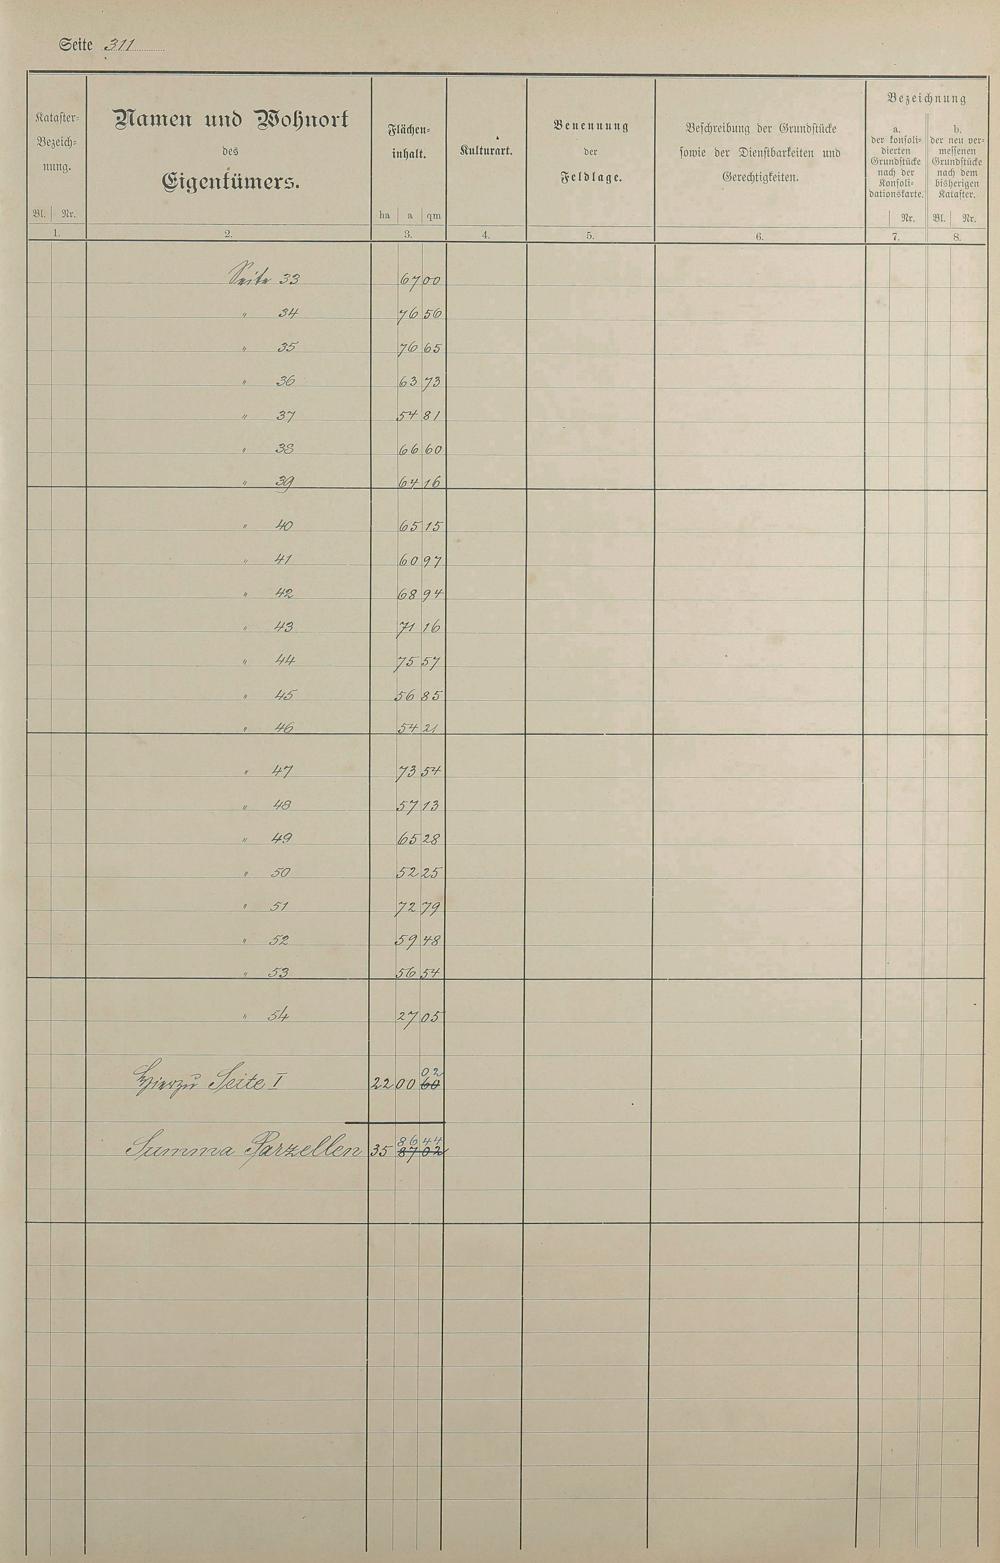 Seite 311
Kataster-
Bezeich-
nung.
Bl. Nr.
1.
Namen und Wohnort
des
Eigentümers.
2.
Flächen-
inhalt.
ha a qm
3.
Kulturart.
4.
Benennung
der
Feldlage.
5.
Beschreibung der Grundstücke
sowie der Dienstbarkeiten und
Gerechtigkeiten.
6.
Bezeichnung
a.
der konsoli-
dierten
Grundstücke
nach der
Konsoli-
dationskarte.
Nr.
7.
b.
der neu ver-
messenen
Grundstücke
nach dem
bisherigen
Kataster.
Bl. Nr.
8.
Seite 33 67 00
" 34 76 56
" 35 76 65
" 36 63 73
" 37 54 81
" 38 66 60
" 39 64 16
" 40 65 15
" 41 60 97
" 42 68 94
" 43 71 16
" 44 75 57
" 45 56 85
" 46 54 21
" 47 73 54
" 48 57 13
" 49 65 28
" 50 52 25
" 51 72 79
" 52 59 48
" 53 56 54
" 54 27 05
02
Hierzu Seite I 22 00 60
86 44
Summa Parzellen 35 87 02